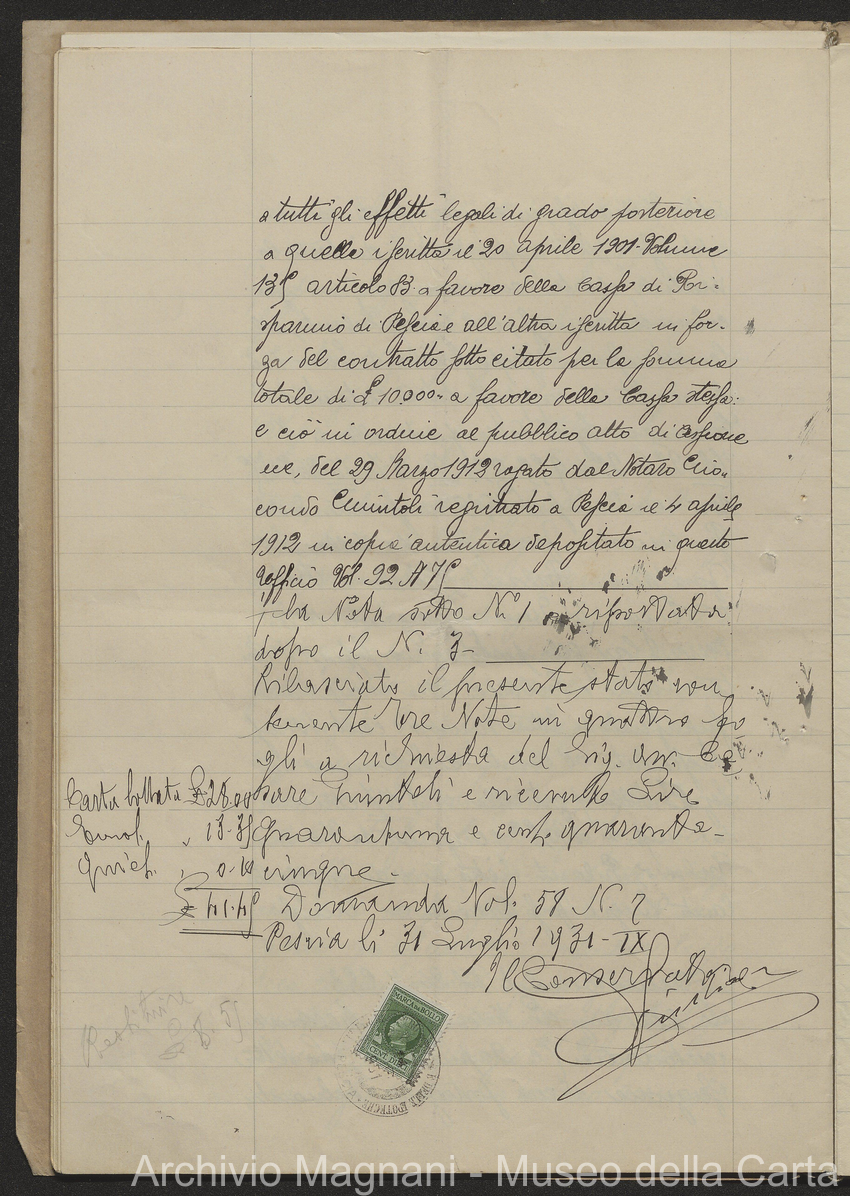 a tutti gli effetti legali di grado posteriore
a quella iscritta il 20 aprile 1901. Volume
135 articolo 83 a favore della Cassa di Ri=
sparmio di Pescia e all'altra iscritta in for-
za del contratto sotto citato per la somma
totale di £ 10.000- a favore della Cassa stessa:
e ciò in ordine al pubblico atto di cessione
del 29 Marzo 1912 rogato dal Notaro Gio-
condo registrato a Pescia il 4 aprile
1912 in copia autentica depositato in questo
Uffficio Vol. 92 A 75
La Nota sotto N.° 1 riportata
dopo il N. 3-
Rilasciato il presente stato con
tenente tre Note in quattro fo
gli a richiesta del Sig. Ce
sare Giuntoli e ricevute Lire
Carta bollata £ 28.00
quarantuna e cent. quaranta-
" 13-35
cinque.
" 0.10
= 41.45
Domanda Vol. 58 N. 7
Pescia li 31 Luglio 1931-IX
Il Conservatore
MARCA DA BOLLO
CENT. DIECI
Restituire
£ 8.55
IPOTECHE
Archivio Magnani - Museo della Carta